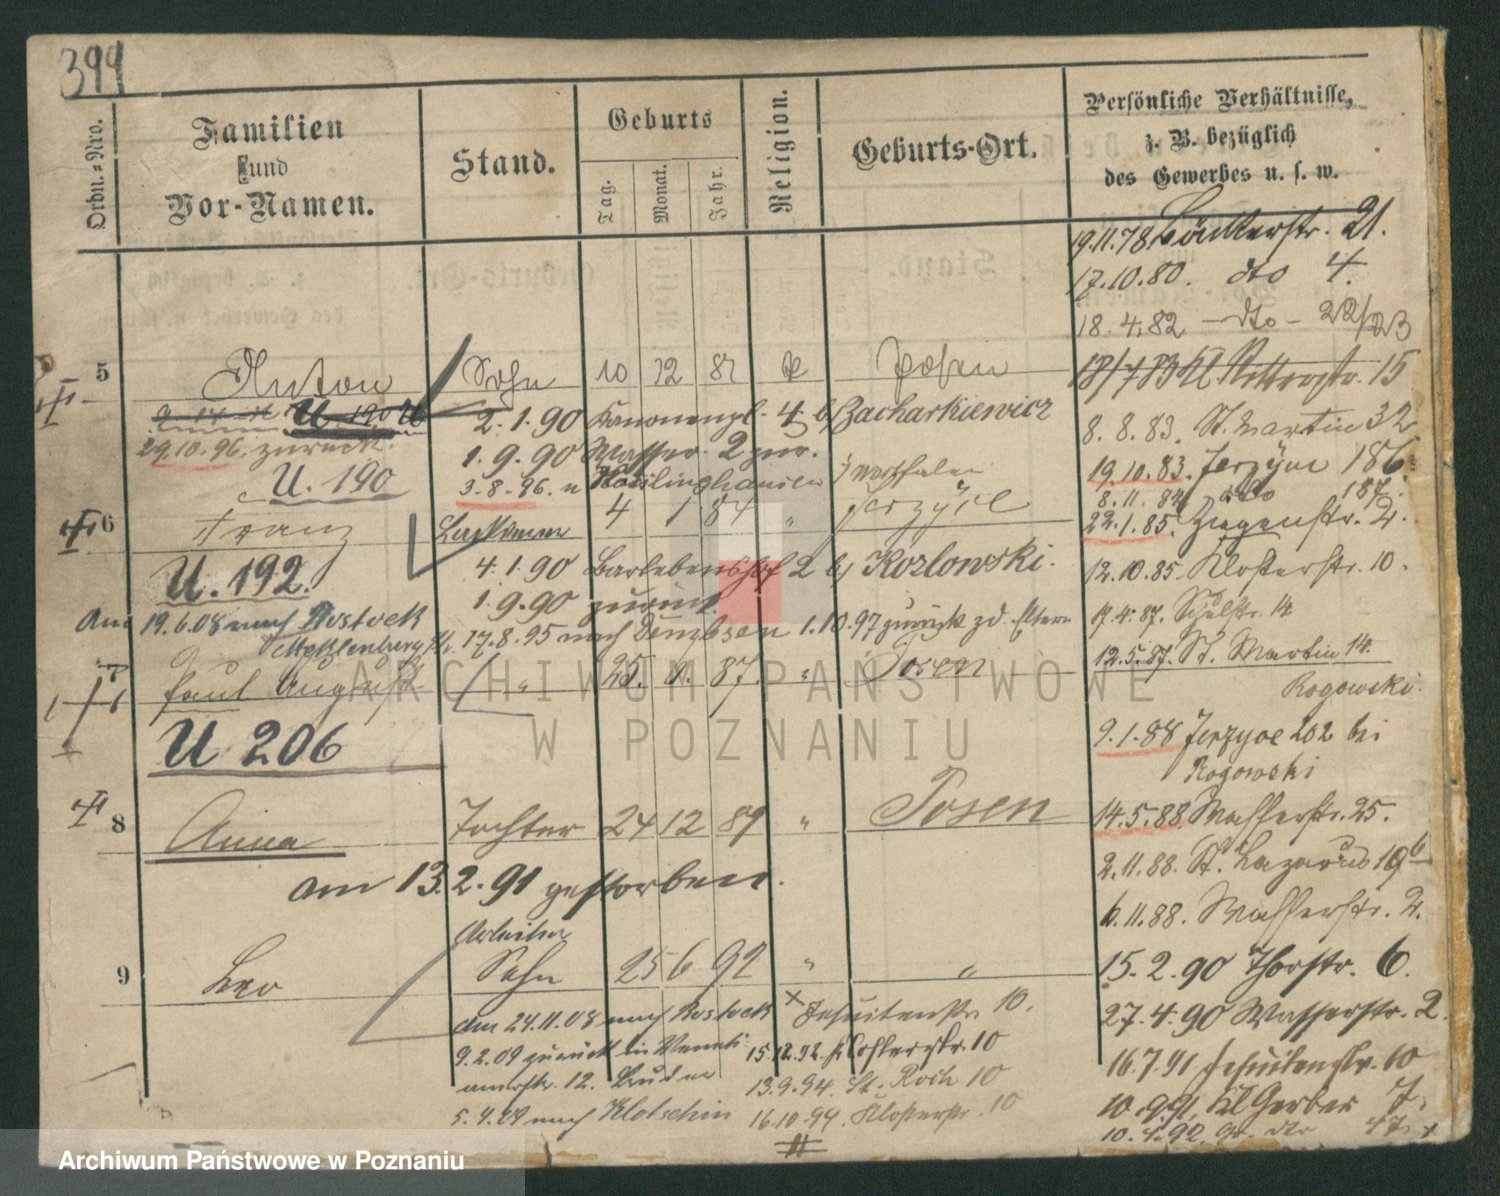 399
Ordn.=Nro.
Familien
und
Vor-Namen.
Stand.
Geburts
Tag.
Monat.
Jahr.
Religion.
Geburts-Ort.
Persönliche Verhältnisse,
z. B. bezüglich
des Gewerbes u. s. w.
19.11.78 Bäckerstr. 21.
17.10.80. dto 4.
18.4.82 – dto – 22/23
18/4 83 Kl Ritterstr. 15
8. 8. 83. St. Martin 32
19.10.83. Jerzyce 186
8. 11. 84 dto 187.
22.1.85. Ziegenstr. 2.
12.10.85. Klosterstr. 10.
17.4.87. Schulstr. 14
12.5.87. St. Martin 14.
Rogowski.
9.1.88 Jerzyce 202 bei
Rogowski
14.5.88 Wasserstr. 25.
2.11.88. St. Lazarus 19b
6.11.88. Wasserstr. 2.
15.2.90 Thorstr. 6.
27.4.90 Wasserstr. 2.
16.7.91 Jesuitenstr. 10
10.9.91. Kl Gerber 7.
10.4.92. Gr. dto 47. x
5 Anton Sohn 10 12 81 k Posen
U. 190
2.1.90 Kanonenpl. 4. b/ Zacharkiewicz
29.10.96. zurück.
1.9.90 Wasser. 2 zur.
U. 190
3.8.96. n Recklinghausen
i/ Westfalen
6 Franz 4 1 84 " Jerzyce
U. 192.
4.1.90 Barlebenshof 2 b/ Kozlowski.
1.9.90 zurück.
Am 19.6.08 nach Rostock
Mecklenburg
17.8.95 nach 1.10.97 zurück zd. Eltern
7 Paul August " 25. 8. 87. " Posen
U 206
8 Anna Tochter 24 12 89 " Posen
am 13.2.91 gestorben.
Arbeiter
9 Leo Sohn 25 6 92 " "
am 24.11.08 nach Rostock
9.2.09 zurück in
12. Bruder
5.4.09 nach Klotschin
x Jesuitenstr. 10.
15.12.92. Klosterstr. 10
13.9.94. St. Roch 10
16.10.94. Klosterstr. 10
ARCHIWUM PAŃSTWOWE
W POZNANIU
Archiwum Państwowe w Poznaniu